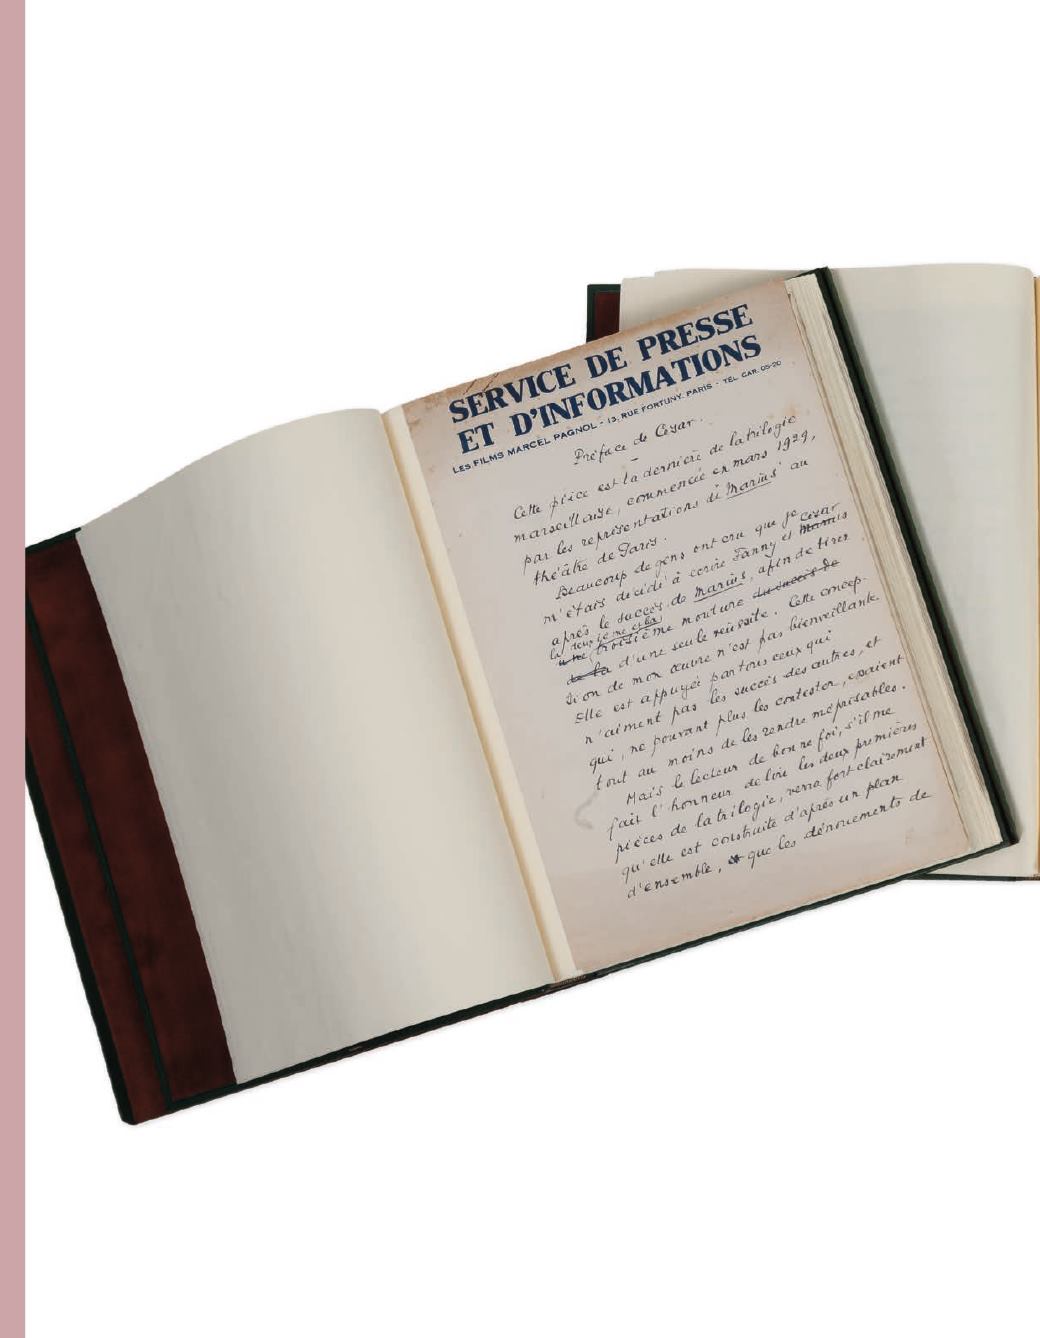 SERVICE DE PRESSE
ET D'INFORMATIONS
LES FILMS MARCEL PAGNOL - 13, RUE FORTUNY, PARIS - TÉL. CAR. 05-20
Préface de César.
Cette pièce est la dernière de la trilogie
marseillaise, commencée en mars 1929,
par les représentations de Marius au
théâtre de Paris.
Beaucoup de gens ont cru que je
m'étais décidé à écrire Fanny et Marius César
après le succès de Marius, afin de tirer
une troisième mouture du succès de
de la d'une seule réussite. Cette concep-
tion de mon œuvre n'est pas bienveillante.
Elle est appuyée par tous ceux qui
n'aiment pas les succès des autres, et
qui, ne pouvant plus les contester, essaient
tout au moins de les rendre méprisables.
Mais le lecteur de bonne foi, s'il me
fait l'honneur de lire les deux premières
pièces de la trilogie, verra fort clairement
qu'elle est construite d'après un plan
d'ensemble, et que les dénouements de